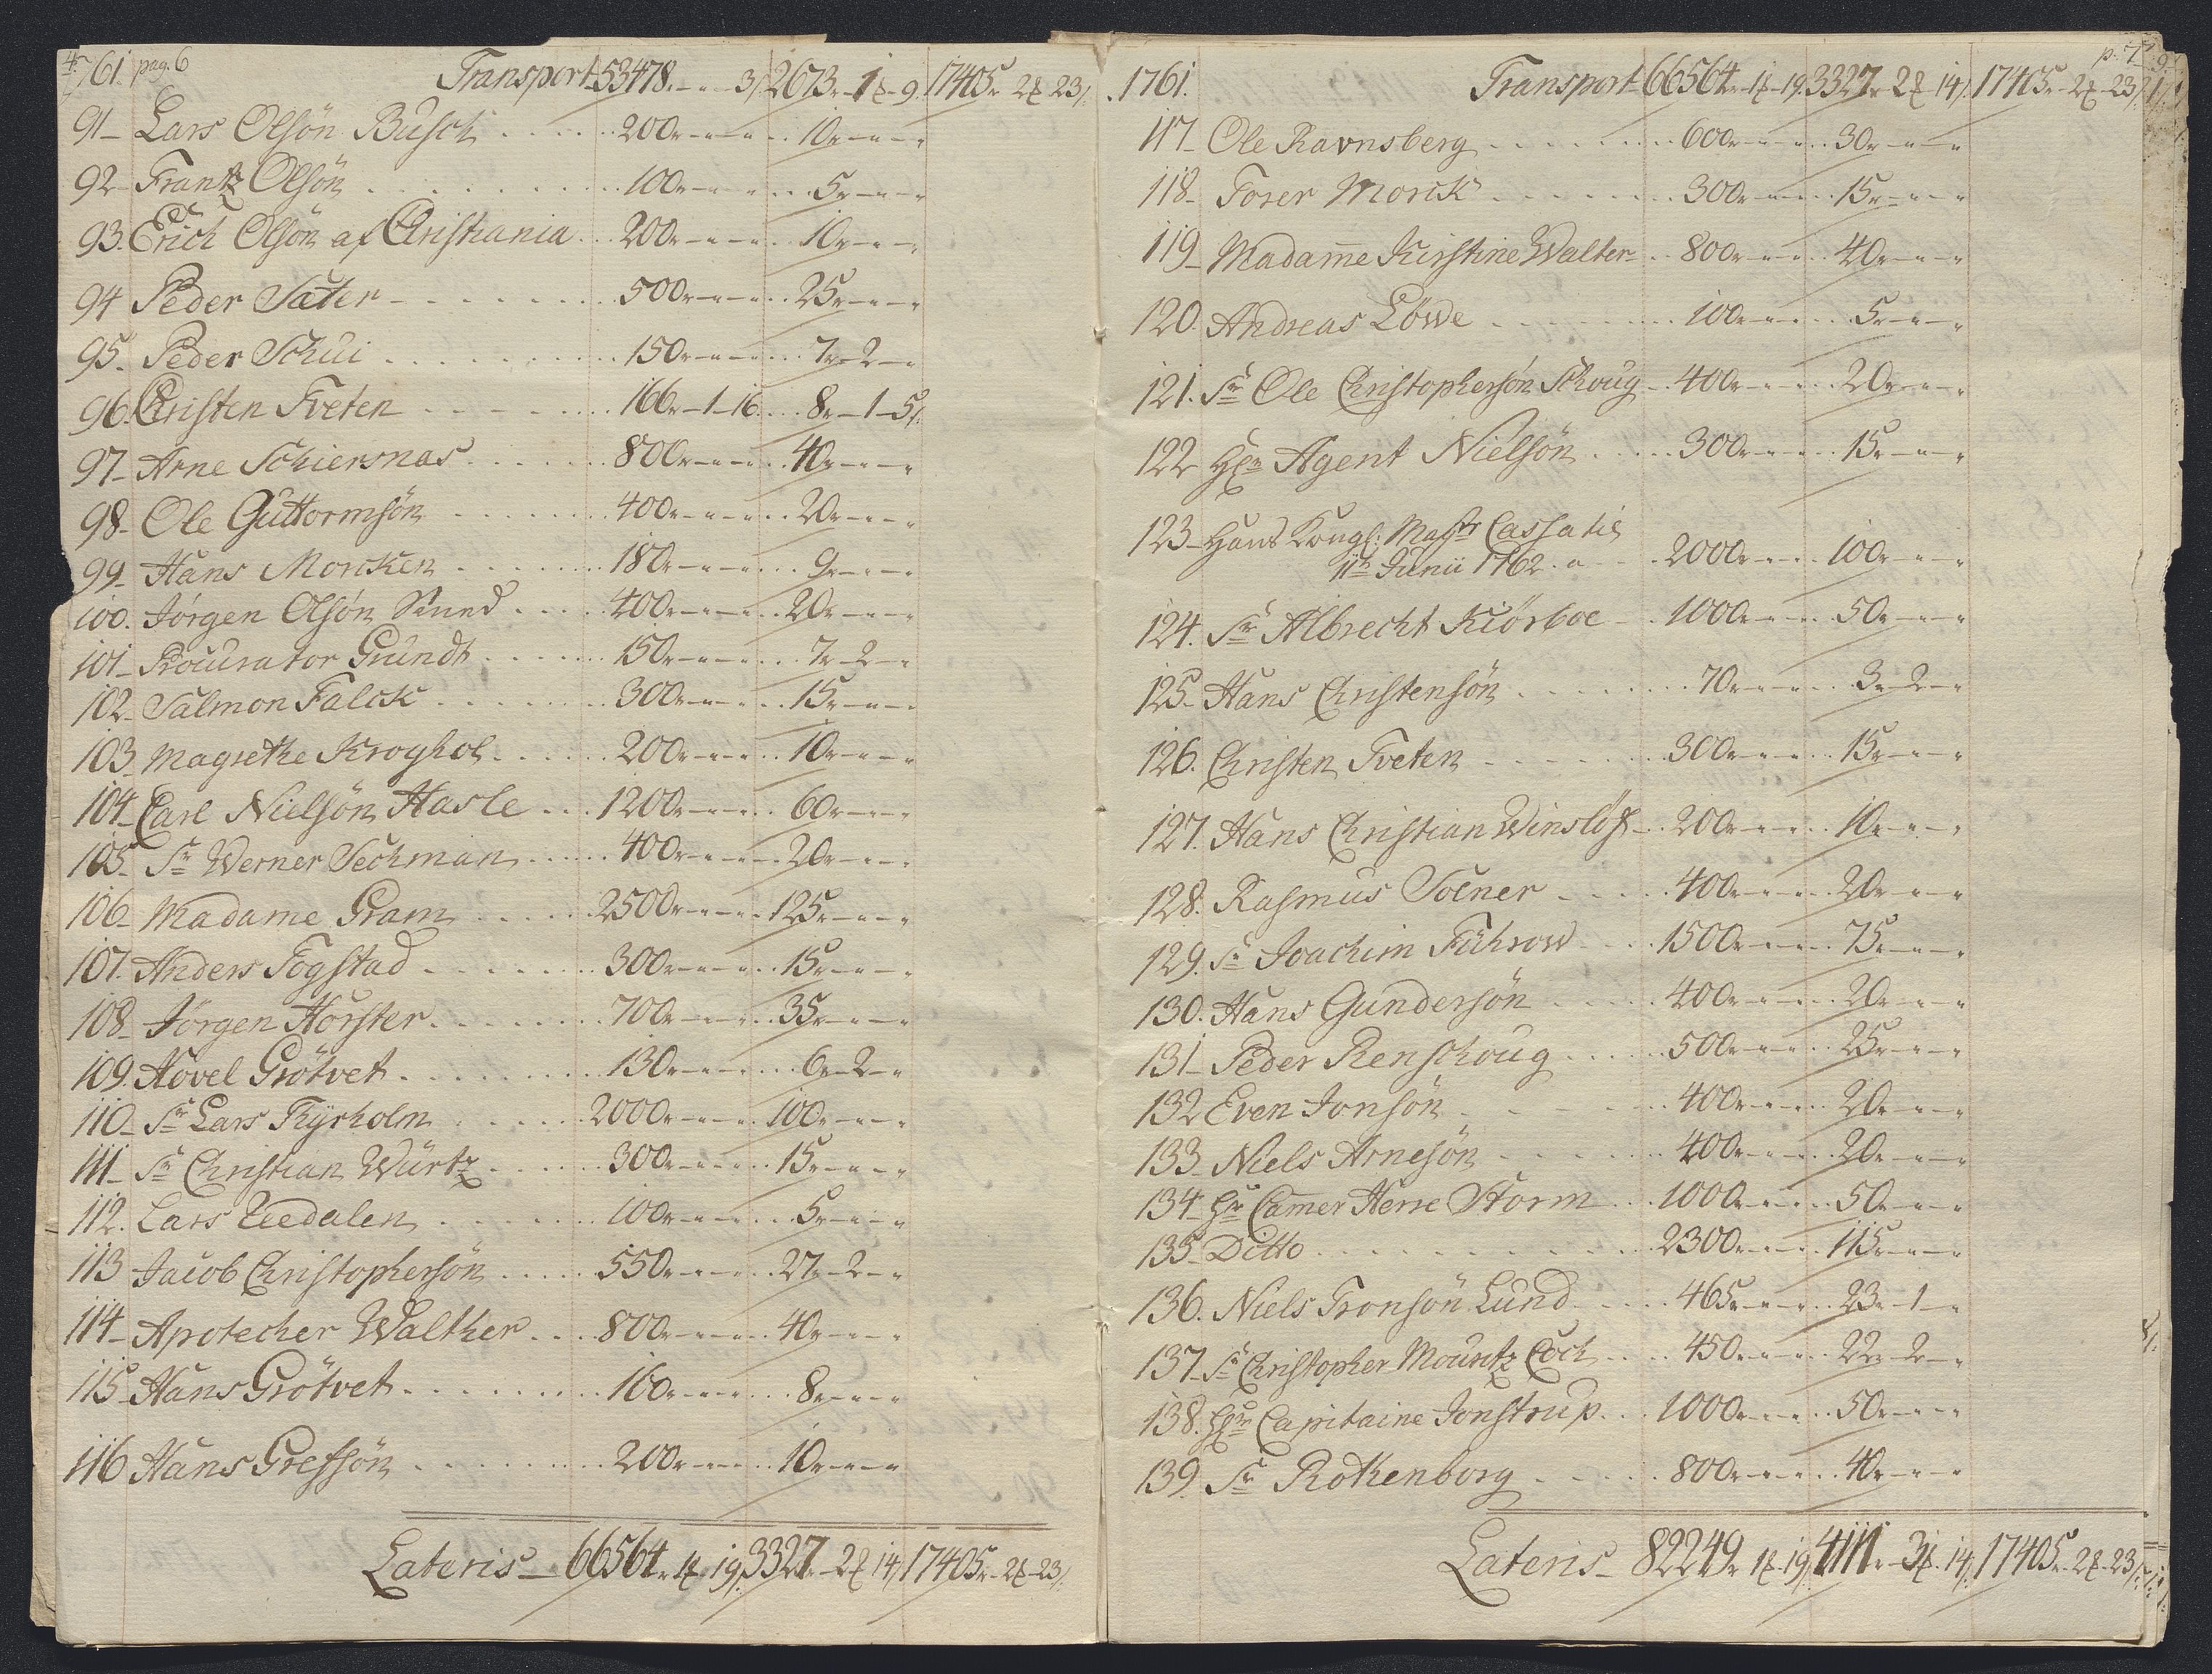 1761. pag. 6 Transport 53478. - " - 3/. 2673r - 1 - 9. 17405r 2 23/.
91 - Lars Olsön Busch . . . . 200r - " - " . . 10r - " - "
92 - Frantz Olsön . . . . 100r - " - " . . 5r - " - "
93. Erich Olsön af Christiania . . 200r - " - " . . 10r - " - "
94 Peder Sater - - - - 500r - " - " . . 25r - " - "
95. Peder Schui . . . . 150r - " - " . . 7r - 2 - "
96. Christen Tveten . . . . 166r - 1 - 16 . . 8r - 1 - 5/.
97 - Arne Schiersnas . . . . 800r - " - " . . 40r - " - "
98 - Ole Guttormsön . . . . 400r - " - " . . 20r - " - "
99 - Hans Morcken . . . . 180r - " - " . . 9r - " - "
100. Jörgen Olsön Sund . . . . 400r - " - " . . 20r - " - "
101 - Procurator Grundt . . . . 150r - " - " . . 7r - 2 - "
102 - Salmon Falck . . . . 300r - " - " . . 15r - " - "
103 - Magrethe Kroghol . . . . 200r - " - " . . 10r - " - "
104 - Carl Nielsön Hasle . . . 1200r - " - " . . 60r - " - "
105 - Sr Werner Sechman . . . . 400r - " - " . . 20r - " - "
106 - Madame Gram . . . . 2500r - " - " . . 125r - " - "
107. Anders Fogstad . . . . 300r - " - " . . 15r - " - "
108 - Jörgen Hörster . . . . 700r - " - " . . 35r - " - "
109. Hovel Grötvet . . . . 130r - " - " . . 6r - 2 - "
110 - Sr Lars Thyrholm . . . . 2000r - " - " . . 100r - " - "
111 - Sr Christian Würtz . . . . 300r - " - " . . 15r - " - "
112. Lars Uedalen . . . . 100r - " - " . . 5r - " - "
113 Jacob Christophersön . . . . 550r - " - " . . 27r - 2 - "
114 - Apotecher Walther . . . . 800r - " - " . . 40r - " - "
115 - Hans Grötvet . . . . 160r - " - " . . 8r - " - "
116 Hans Grefsön . . . . 200r - " - " . . 10r - " - "
Lateris - 66564r 1 19/. 3327r - 2 14/. 17405r - 2 - 23/.
1761. Transport 66564r - 1 - 19. 3327r 2 14/. 17405r - 2 - 23/. p. 7
117 - Ole Ravnsberg . . . . 600r - " - " . . 30r - " - "
118 - Torer Morck . . . . 300r - " - " . . 15r - " - "
119 - Madame Kirstine Walter . . 800r - " - " . . 40r - " - "
120. Andreas Löwe . . . . 100r - " - " . . 5r - " - "
121. Sr Ole Christophersön Schoug . . 400r - " - " . . 20r - " - "
122 Hr Agent Nielsön . . . . 300r - " - " . . 15r - " - "
123 - Hans Kongl: Mayts Cassa til
11te Junii 1762 . . . 2000r - " - " . . 100r - " - "
124. Sr Albrecht Kiörboe - 1000r - " - " . . 50r - " - "
125 - Hans Christensön . . . . 70r - " - " . . 3r - 2 - "
126. Christen Tveten . . . . 300r - " - " . . 15r - " - "
127. Hans Christian Winslöf - . . 200r - " - " . . 10r - " - "
128. Rasmus Solner . . . . 400r - " - " . . 20r - " - "
129. Sr Joachim Führow . . . 1500r - " - " . . 75r - " - "
130. Hans Gundersön . . . . 400r - " - " . . 20r - " - "
131 - Peder Renschoug . . . . 500r - " - " . . 25r - " - "
132 Even Jonsön . . . . 400r - " - " . . 20r - " - "
133 - Niels Arnesön . . . . 400r - " - " . . 20r - " - "
134 - Hr Camer Herre Storm . . 1000r - " - " . . 50r - " - "
135 - Ditto . . . . 2300r - " - " . . 115r - " - "
136. Niels Tronsön Lund . . . . 465r - " - " . . 23r - 1 - "
137 - Sr Christopher Mouritz Coch . . . 450r - " - " . . 22r - 2 - "
138. Hr Capitaine Jonstrup . . . 1000r - " - " . . 50r - " - "
139. Sr Rothenborg . . . . 800r - " - " . . 40r - " - "
Lateris - 82249r 1 19/. 4111r - 3 14/. 17405r - 2 - 23/.